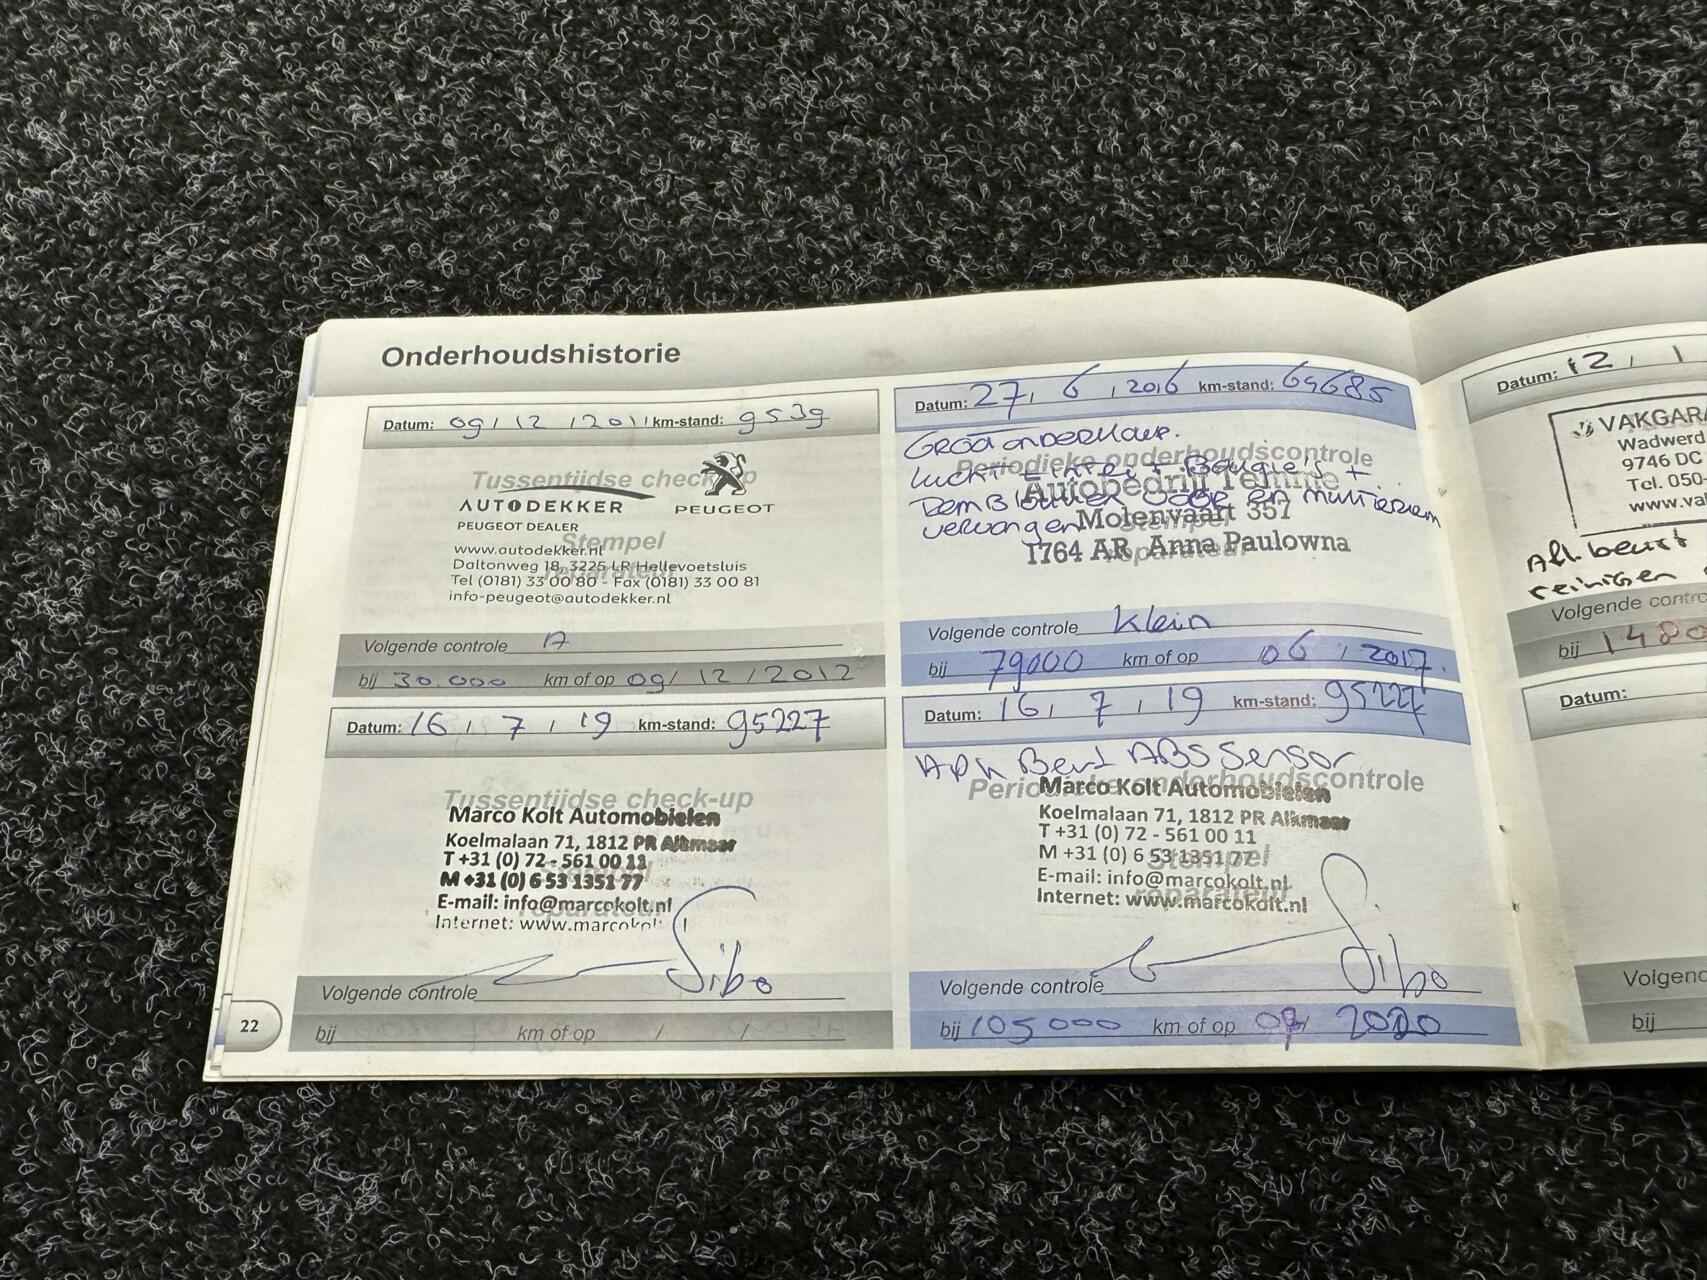 Onderhoudshistorie
Datum: 09 / 12 / 2011 km-stand: 9539
Tussentijdse check-up
AUTODEKKER PEUGEOT
PEUGEOT DEALER
Stempel
reparateur
www.autodekker.nl
Daltonweg 18, 3225 LR Hellevoetsluis
Tel (0181) 33 00 80 - Fax (0181) 33 00 81
info-peugeot@autodekker.nl
Volgende controle A
bij 30.000 km of op 09 / 12 / 2012
Datum: 27, 6, 2016 km-stand: 69685
Groot onderhoud.
Periodieke onderhoudscontrole
Luchtfilter + Bougies +
Autobedrijf Temme
vervangen
Molenvaart 357
Stempel
1764 AR Anna Paulowna
reparateur
Volgende controle Klein
bij 79000 km of op 06, 2017.
Datum: 16, 7, 19 km-stand: 95227
Tussentijdse check-up
Marco Kolt Automobielen
Koelmalaan 71, 1812 PR Alkmaar
T +31 (0) 72 - 561 00 11
Stempel
M +31 (0) 6 53 1351 77
E-mail: info@marcokolt.nl
reparateur
Internet: www.marcokolt.nl
Sibo
Volgende controle
bij km of op / /
Datum: 16, 7, 19 km-stand: 95227
Apk Beurt ABS Sensor
Periodieke onderhoudscontrole
Marco Kolt Automobielen
Koelmalaan 71, 1812 PR Alkmaar
T +31 (0) 72 - 561 00 11
M +31 (0) 6 53 1351 77
Stempel
E-mail: info@marcokolt.nl
reparateur
Internet: www.marcokolt.nl
Sibo
Volgende controle
bij 105000 km of op 2020
22
Datum: 12, 1
VAKGARA
Wadwerd
9746 DC
Tel. 050-
www.va
beurt
reinigen
Volgende contro
bij 1480
Datum:
Volgen
bij